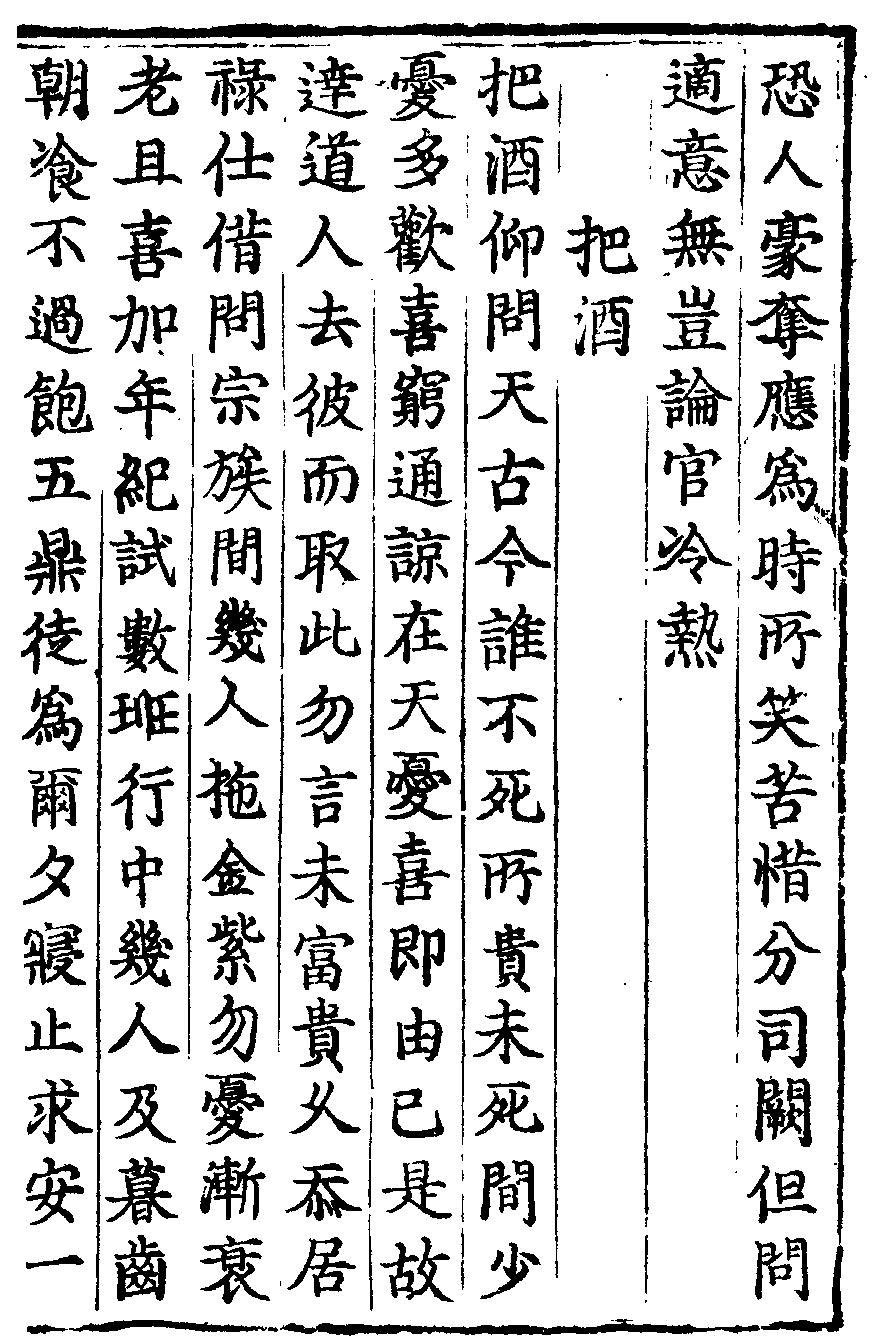 恐人豪奪應爲時所笑苦惜分司闕但問
適意無豈論官冷熱
把酒
把酒仰問天古今誰不死所貴未死間少
憂多歡喜窮通諒在天憂喜即由已是故
達道人去彼而取此勿言未富貴久忝居
祿仕借問宗族間幾人拖金紫勿憂漸衰
老且喜加年紀試數班行中幾人及暮齒
朝飡不過飽五鼎徒爲爾夕寢止求安一